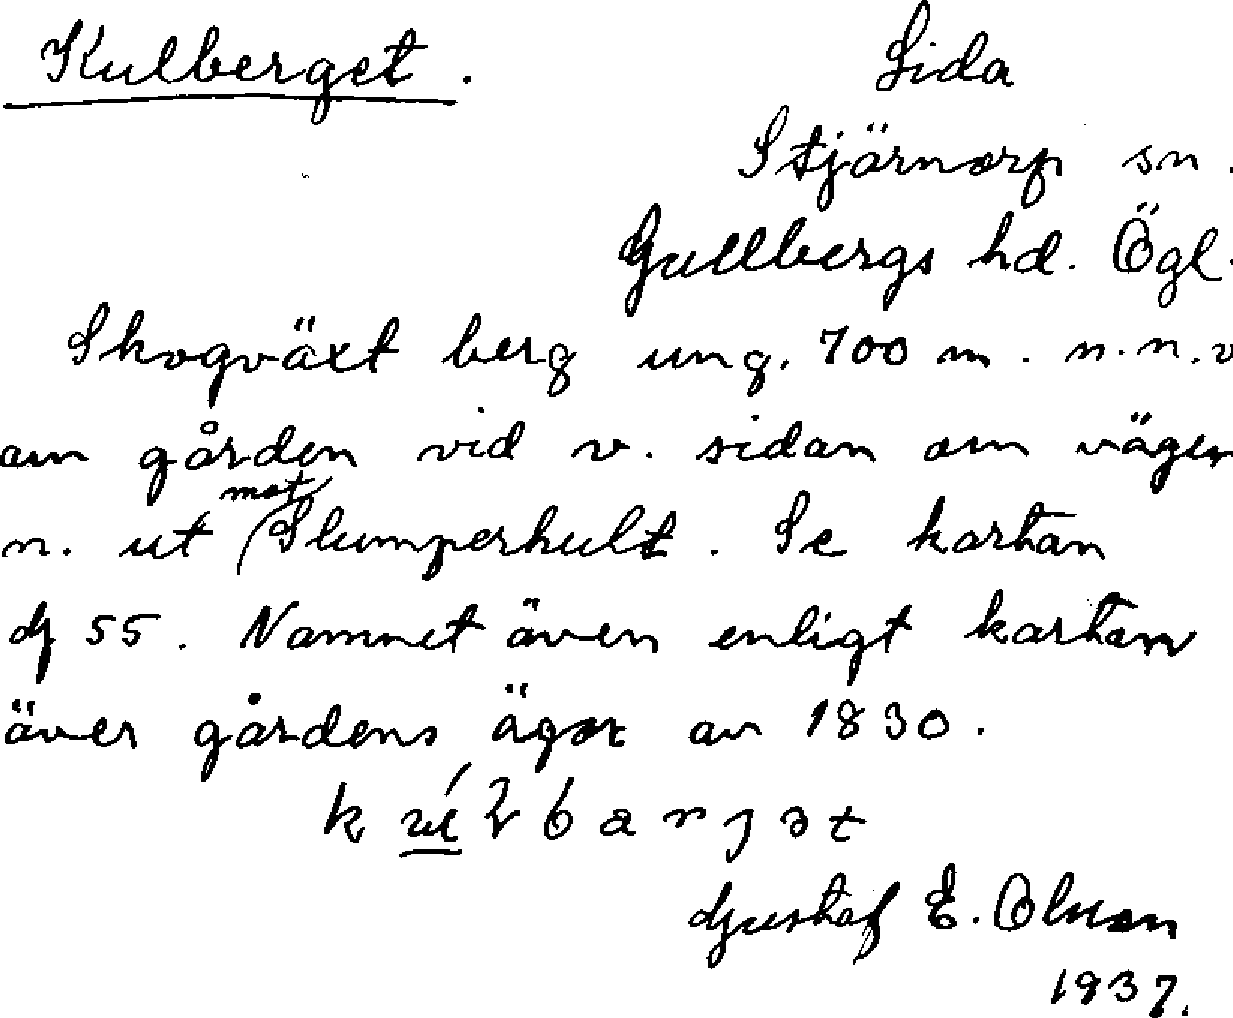 Kulberget. Lida
Stjärnorp sn.
Gullbergs hd. Ögl.
Skogväxt berg ung. 700 m. n.n.v
om gården vid v. sidan om vägen
n. ut mot Slumperhult. Se kartan
dj 55. Namnet även enligt kartan
över gårdens ägor av 1830.
Gustaf E. Olson
1937.